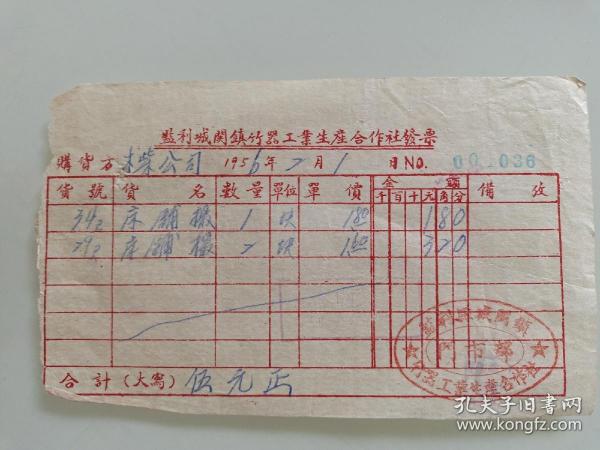 監利城関鎮竹器工業生産合作社發票
購貨方 木柴公司 1956年2月1日 NO. 00 036
貨號 貨名 數量 單位 單價 金額 備攷
千百十元角分
床舖 1 块 180 180
床舖 2 块 160 320
合計(大寫) 伍元正
監利縣城関鎮
門市部
竹器工業生産合作社
孔夫子旧书网
www.kongfz.com